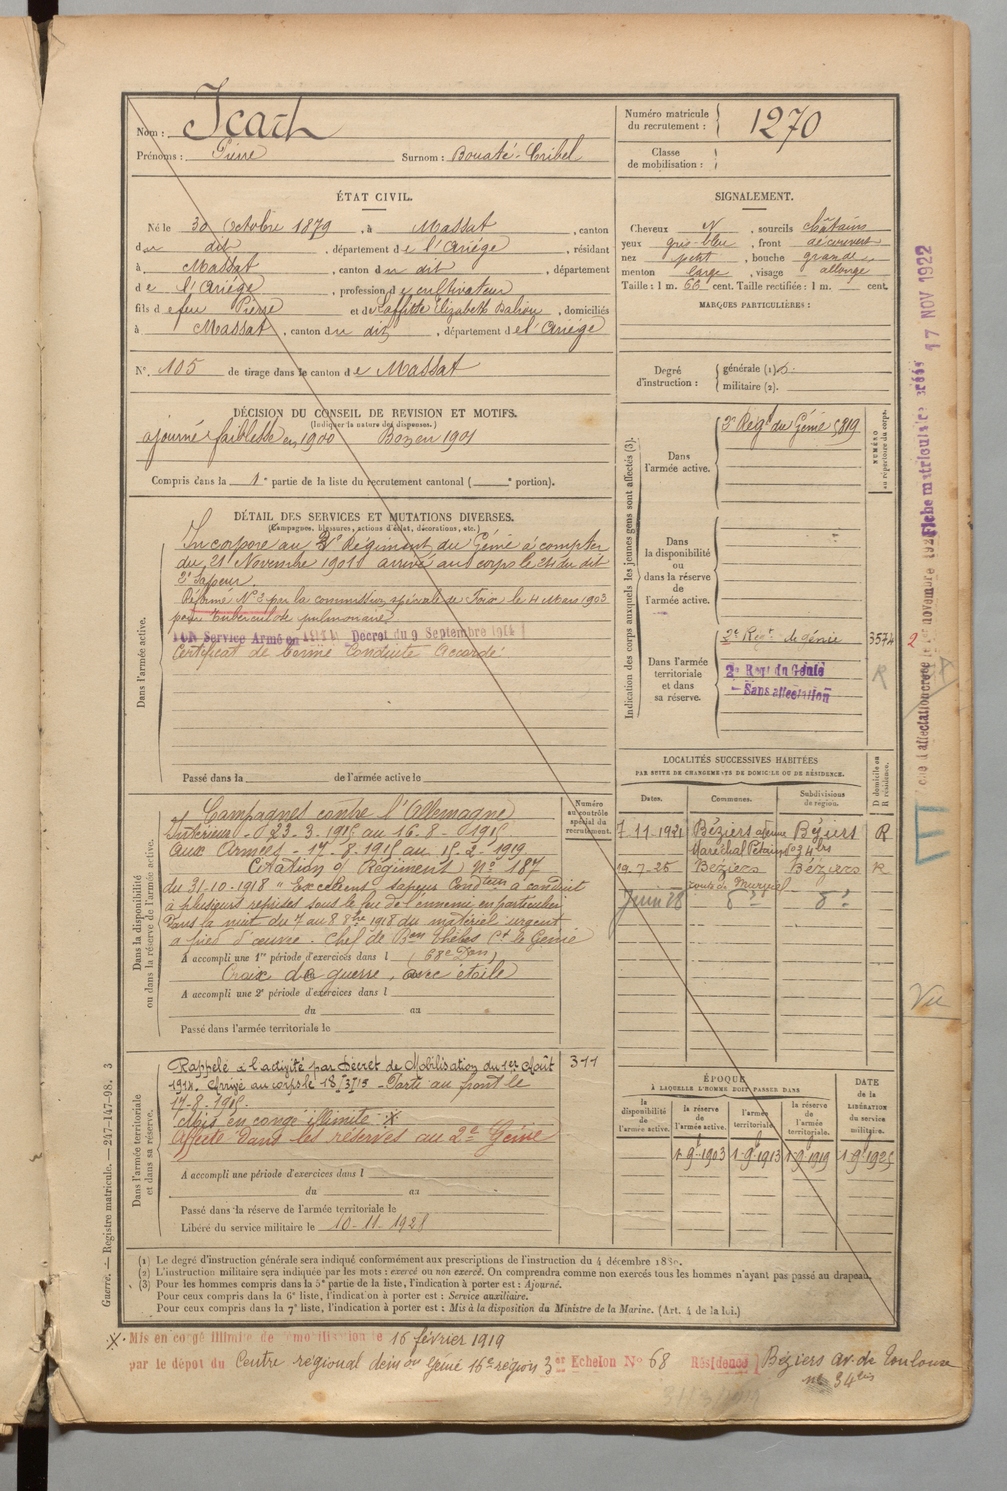 Nom : Icart
Prénoms : Pierre Surnom : Bouaté-Tribel
Numéro matricule du recrutement : 1270
Classe de mobilisation :
ÉTAT CIVIL.
Né le 30 Octobre 1879, à Massat, canton
du dit, département de l'Ariège, résidant
à Massat, canton du dit, département
de l'Ariège, profession de cultivateur
fils de feu Pierre et de Laffitte Elizabeth, domiciliés
à Massat, canton du dit, département de l'Ariège
N° 105 de tirage dans le canton de Massat
SIGNALEMENT.
Cheveux N, sourcils châtains
yeux gris-bleu, front découvert
nez petit, bouche grande
menton large, visage allongé
Taille : 1 m. 66 cent. Taille rectifiée : 1 m. cent.
MARQUES PARTICULIÈRES :
Degré d'instruction : générale (1)
militaire (2).
DÉCISION DU CONSEIL DE REVISION ET MOTIFS.
(Indiquer la nature des dispenses.)
ajourné faiblesse en 1900 Bon en 1901
Compris dans la 1e partie de la liste du recrutement cantonal ( e portion).
DÉTAIL DES SERVICES ET MUTATIONS DIVERSES.
(Campagnes, blessures, actions d'éclat, décorations, etc.)
Dans l'armée active.
Incorporé au 2e Régiment du Génie à compter
du 21 Novembre 1901 arrivé au corps le 24 du dit
2e Sapeur.
Réformé N° 2 par la commission spéciale de Foix le 4 Mars 1903
pour tuberculose pulmonaire.
BON Service Armé en 1914 Décret du 9 Septembre 1914
Certificat de bonne Conduite Accordé
Passé dans la de l'armée active le
Indication des corps auxquels les jeunes gens sont affectés (3).
NUMÉRO au répertoire du corps.
Dans l'armée active.
2e Régt du Génie 5819
Dans la disponibilité ou dans la réserve de l'armée active.
Dans l'armée territoriale et dans sa réserve.
2e Régt de génie 3574
R
2e Regt du Génie
- Sans affectation
2
17 NOV 1922
Fiche matriculaire créée
LOCALITÉS SUCCESSIVES HABITÉES
PAR SUITE DE CHANGEMENTS DE DOMICILE OU DE RÉSIDENCE.
Dates. Communes. Subdivisions de région. D domicile ou R résidence.
7-11-1921 Béziers avenue Béziers R
Maréchal Pétain n° 34 bis
19.7-25 Béziers Béziers R
Juin 28
Vu
Dans la disponibilité ou dans la réserve de l'armée active.
Numéro au contrôle spécial du recrutement.
Campagnes contre l'Allemagne
Intérieur - 23-3-1915 au 16-8-1915
Aux Armées - 17-8-1915 au 15-2-1919
Citation O/ Régiment N° 187
du 31-10-1918 " Excellent sapeur Conducteur a conduit
à plusieurs reprises sous le feu de l'ennemi en particulier
dans la nuit du 7 au 8 8bre 1918 du matériel urgent
à pied d'œuvre. Chef de Bon Thébes Ct le Génie
A accompli une 1re période d'exercices dans l (68e Don)
Croix de guerre, avec étoile
A accompli une 2e période d'exercices dans l
du au
Passé dans l'armée territoriale le
Dans l'armée territoriale et dans sa réserve.
Rappelé à l'activité par Décret de Mobilisation du 1er Août 311
1914. Arrivé au corps le 18/3/15 - Parti au front le
17-8-1915.
Mis en congé illimité X
Affecté dans les réserves au 2e Génie
A accompli une période d'exercices dans l
du au
Passé dans la réserve de l'armée territoriale le
Libéré du service militaire le 10-11-1928
ÉPOQUE
À LAQUELLE L'HOMME DOIT PASSER DANS
la disponibilité de l'armée active. la réserve de l'armée active. l'armée territoriale. la réserve de l'armée territoriale.
DATE de la LIBÉRATION du service militaire.
1-9bre-1903 1-9bre-1913 1-9bre-1919 1-9-1925
(1) Le degré d'instruction générale sera indiqué conformément aux prescriptions de l'instruction du 4 décembre 1889.
(2) L'instruction militaire sera indiquée par les mots : exercé ou non exercé. On comprendra comme non exercés tous les hommes n'ayant pas passé au drapeau.
(3) Pour les hommes compris dans la 5e partie de la liste, l'indication à porter est : Ajourné.
Pour ceux compris dans la 6e liste, l'indication à porter est : Service auxiliaire.
Pour ceux compris dans la 7e liste, l'indication à porter est : Mis à la disposition du Ministre de la Marine. (Art. 4 de la loi.)
Guerre. — Registre matricule. — 247-147-98. 3
X. Mis en congé illimité de démobilisation le 16 février 1919
par le dépôt du Centre régional démon Génie 16e région 3er Echelon N° 68 Résidence Béziers av. de Toulouse
n° 34 bis